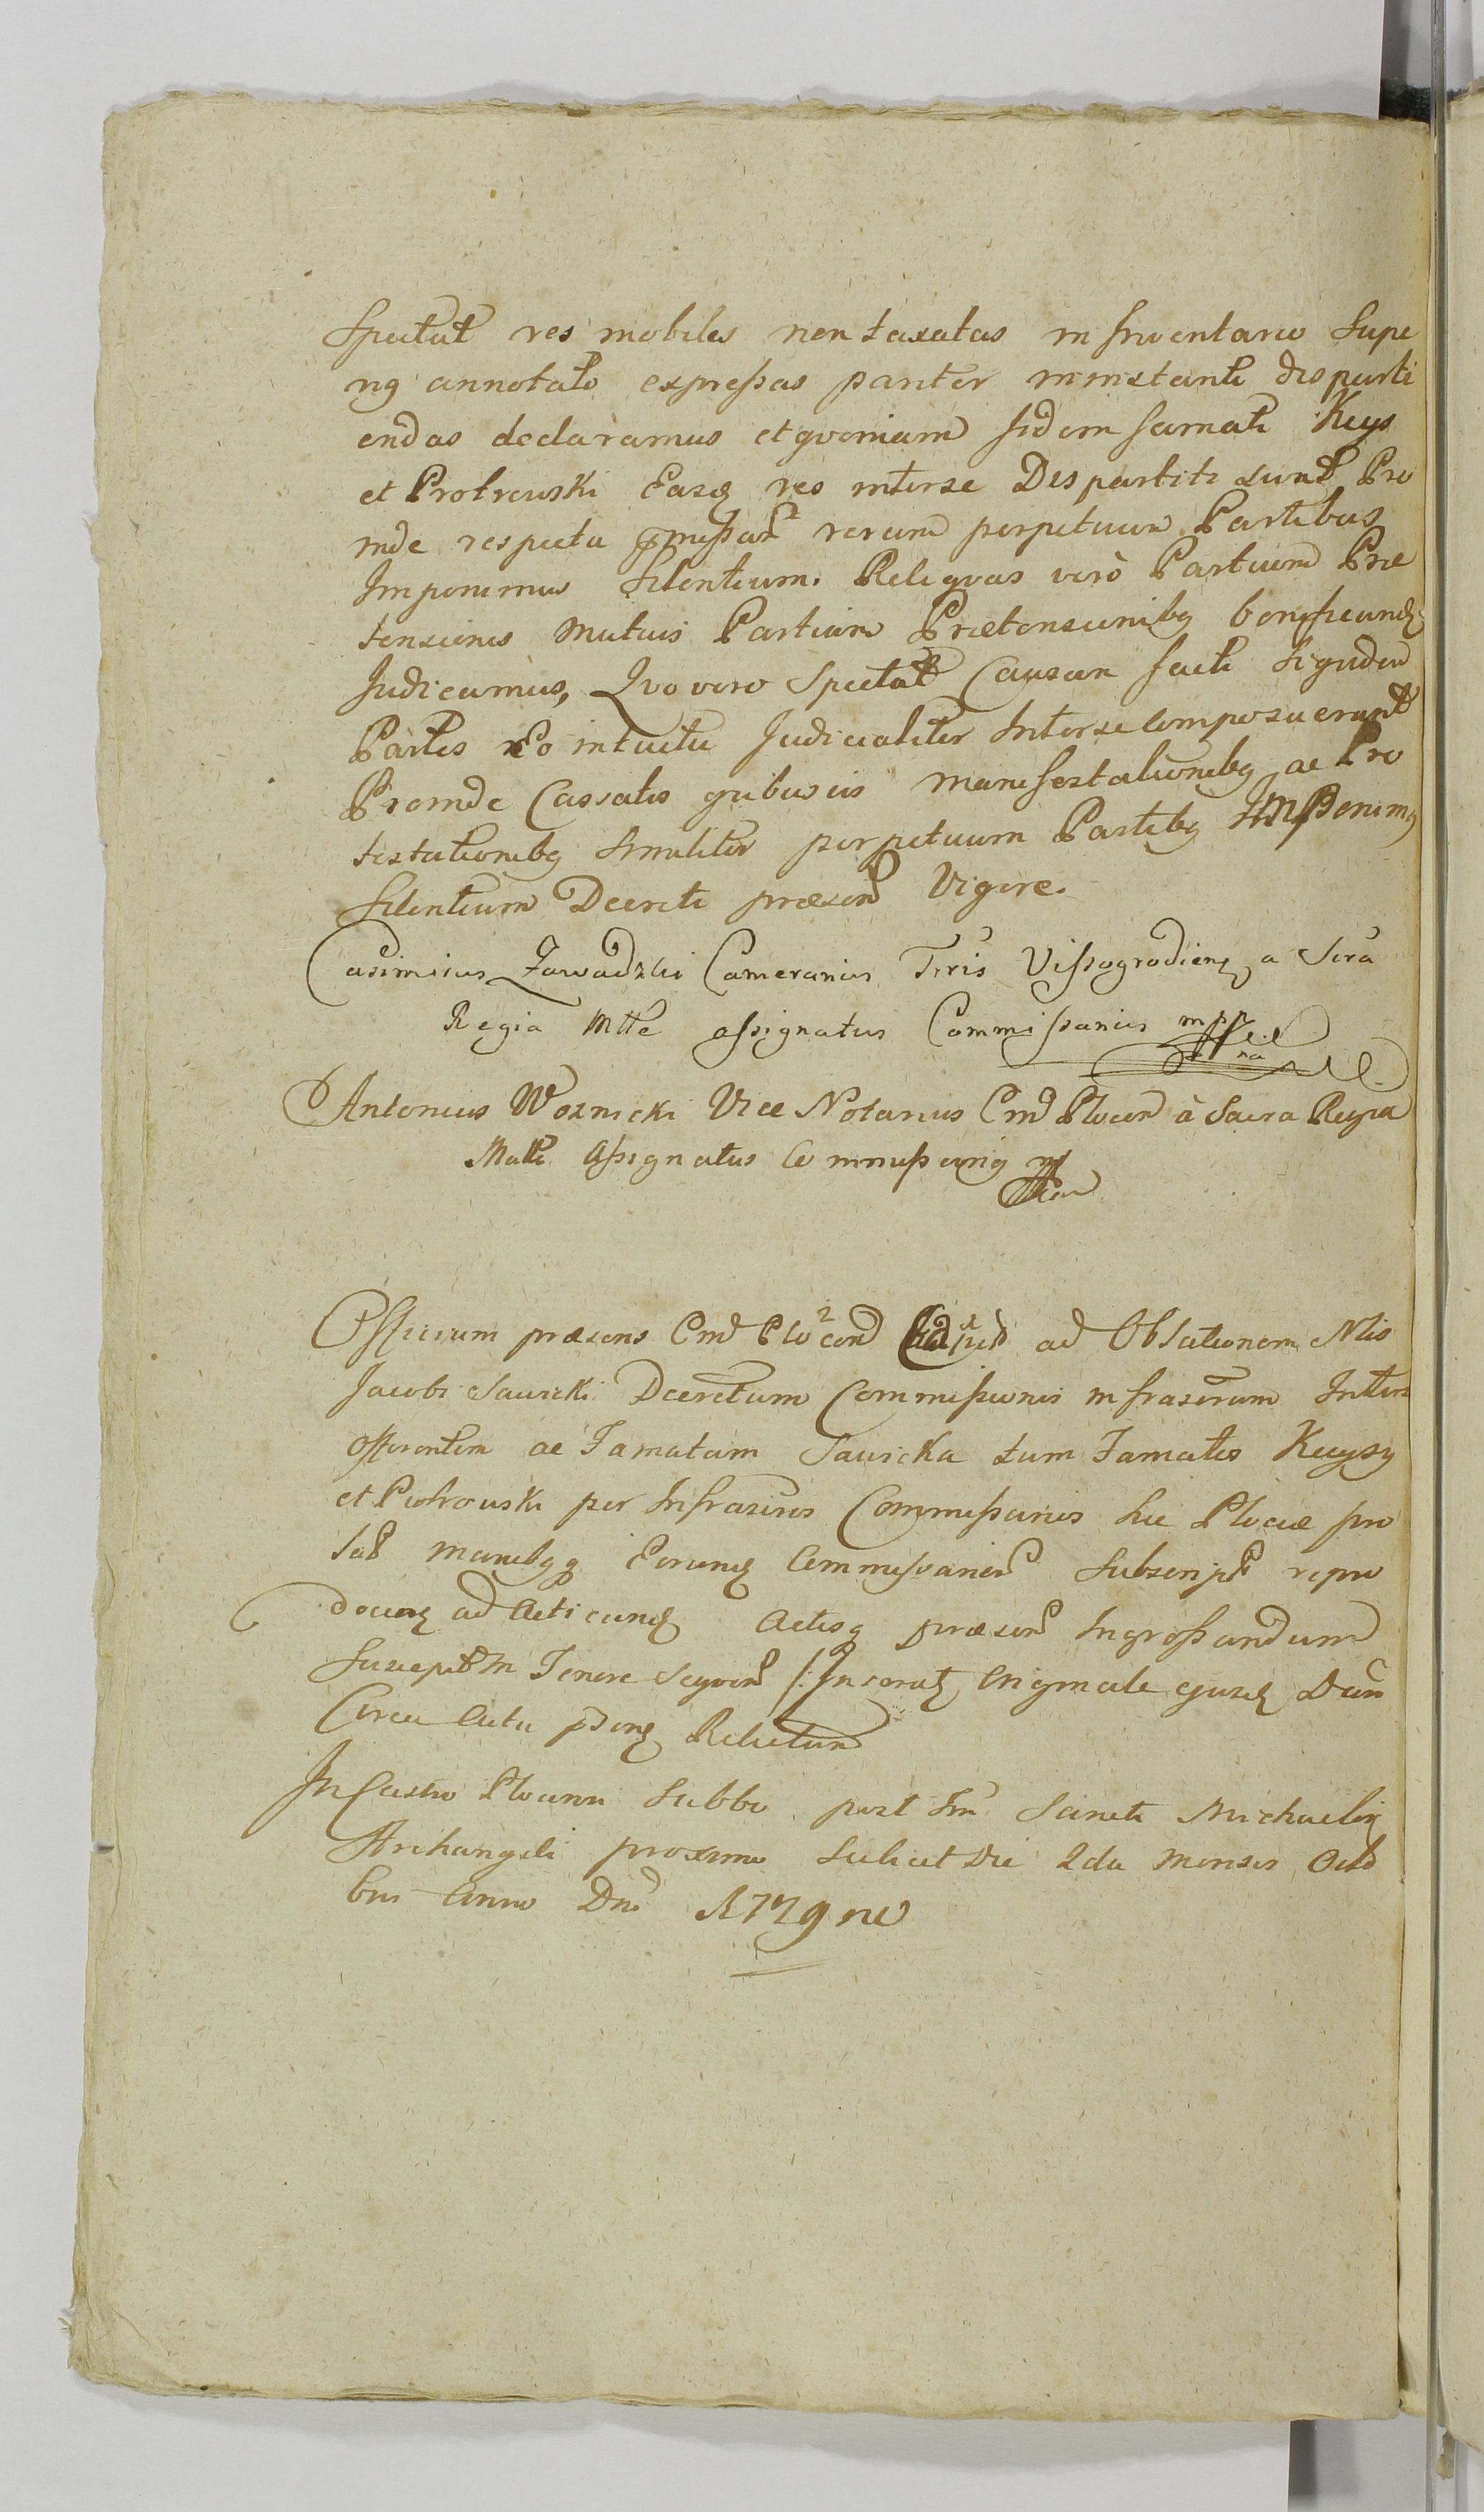 Spectat res mobiles non taxatas in Inventario Supe
rius annotato expressas pariter in instanti disparti
endas declaramus et qvoniam iidem famati Kuys
et Piotrowski Easq res interse Dispartiti sunt Pro
inde respectu pmissar rerum perpetuum Partibus
Imponimus Silentium. Reliqvas verò Partium Præ
tensiones Mutuis Partium Prætensionibq
Judicamus, Qvo vero Spectat Causam facti siquidem
Partes Eo intuitu Judicialiter Interse composuerunt
Proinde Cassatis quibusvis manifestationibq ac Pro
testationibq Similiter perpetuum Partibq Imponimq
Silentium Decreti præsen Vigore.
Casimirus Zawadzki Camerarius Terris Vissogrodienq a Scra
Regia Mtte assignatus Commissarius mpp
Antonius Woznicki Vice Notarius Cmd Plocen à Sacra Regia
Matte Assignatus Commissariq
Officium præsens Cmd Plocen ad Oblationem Nlis
Jacobi Sawicki Decretum Commissionis infrascrum Inter
offerentem ac Famatam Sawicka tum Famatos Kuysy
et Piotrowski per Infrascros Commissarios hic Plociæ pro
lat manibqq Eorundq Commissarior Subscript repro
ducenq ad Acticandq Actisq præsen Ingrossandum
Suscepit In Tenore seqven /: Inseratq Originale ejusdq Dum
Circa Acta psenq Relictum
In Castro Plocensi Sabbo post fm Sancti Michaelis
Archangeli proximo scilicet Die 2da Mensis Octo
bris Anno Dni 1779no